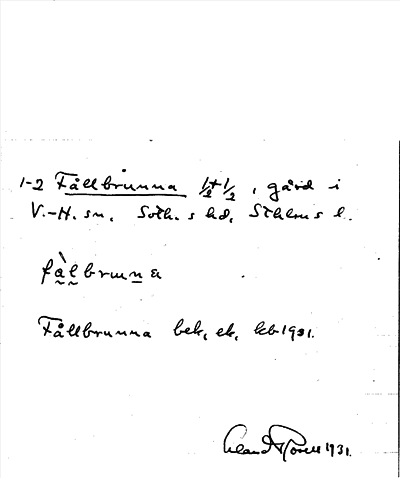 1-2 Fållbrunna 1/2+1/2, gård i
V.-H. sn, Soth. s hd, Sthlms l.
fàlbrunna
Fållbrunna bek, ek, kb 1931.
1931.